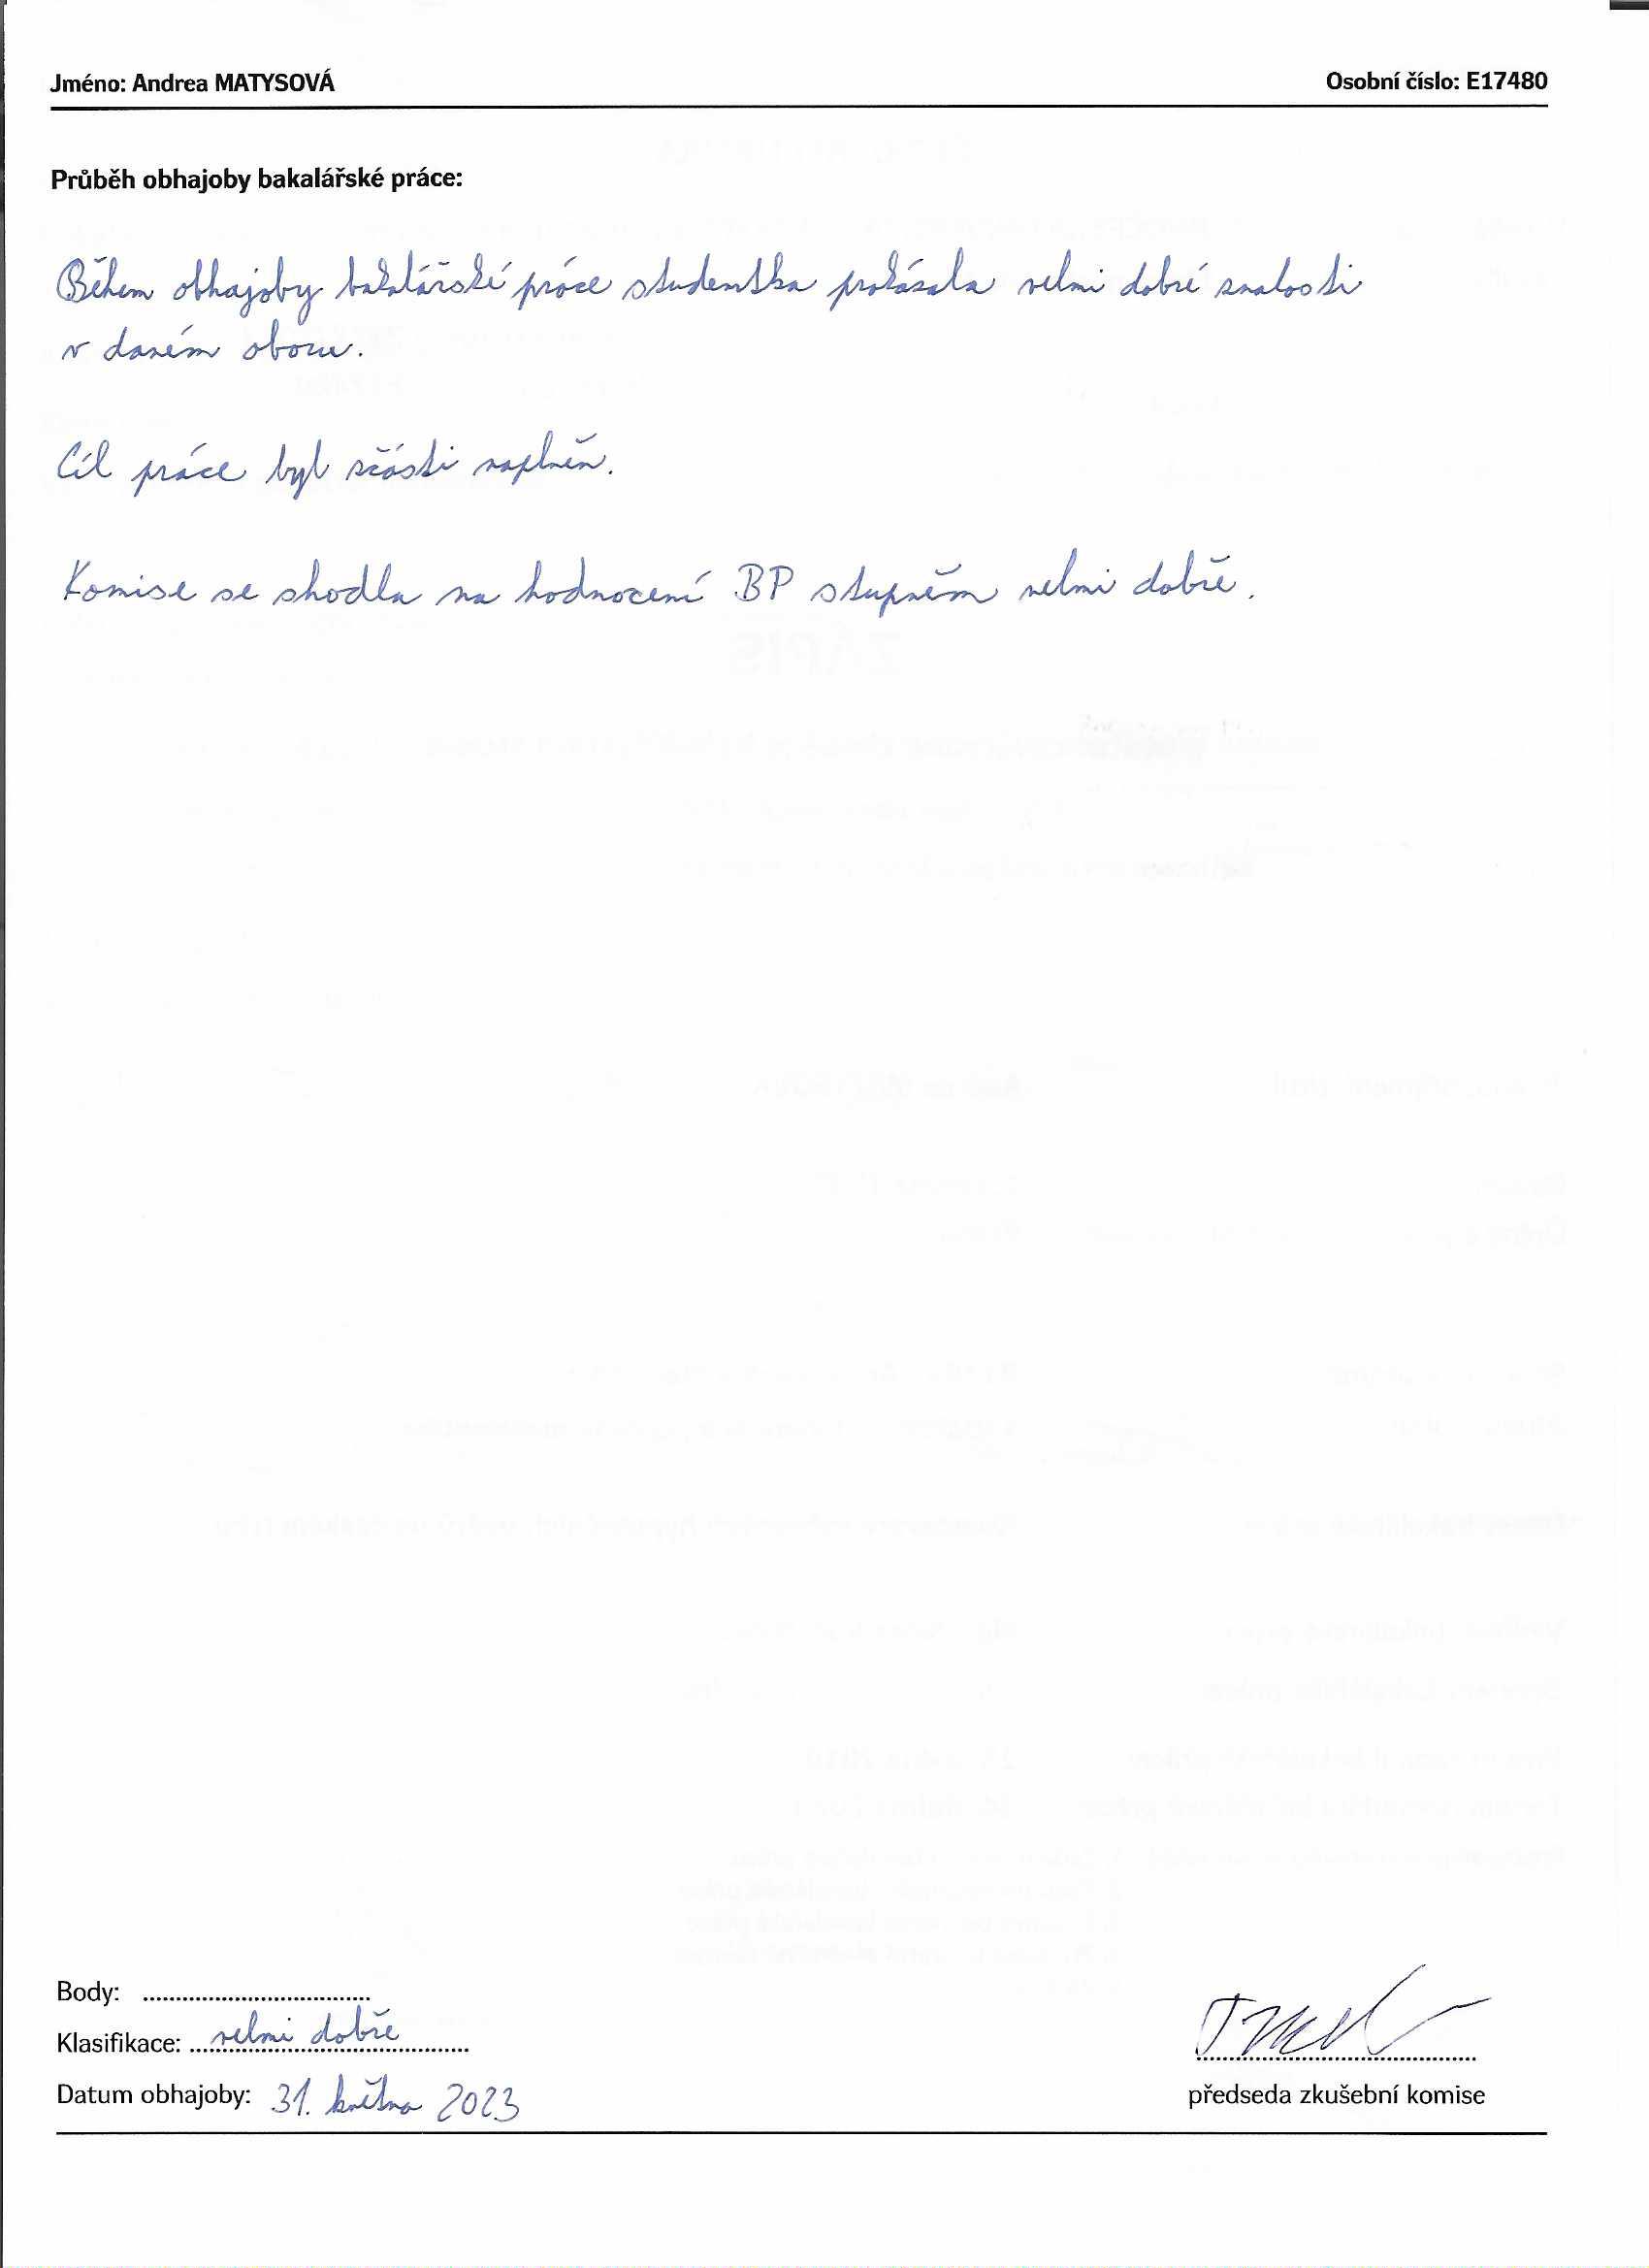 Jméno: Andrea MATYSOVÁ Osobní číslo: E17480
Průběh obhajoby bakalářské práce:
Během obhajoby bakalářské práce studentka prokázala velmi dobré znalosti
v daném oboru.
Cíl práce byl zčásti naplněn.
Komise se shodla na hodnocení BP stupněm velmi dobře.
ZÁPIS
Body: ..................................
Klasifikace: velmi dobře
Datum obhajoby: 31. května 2023
předseda zkušební komise